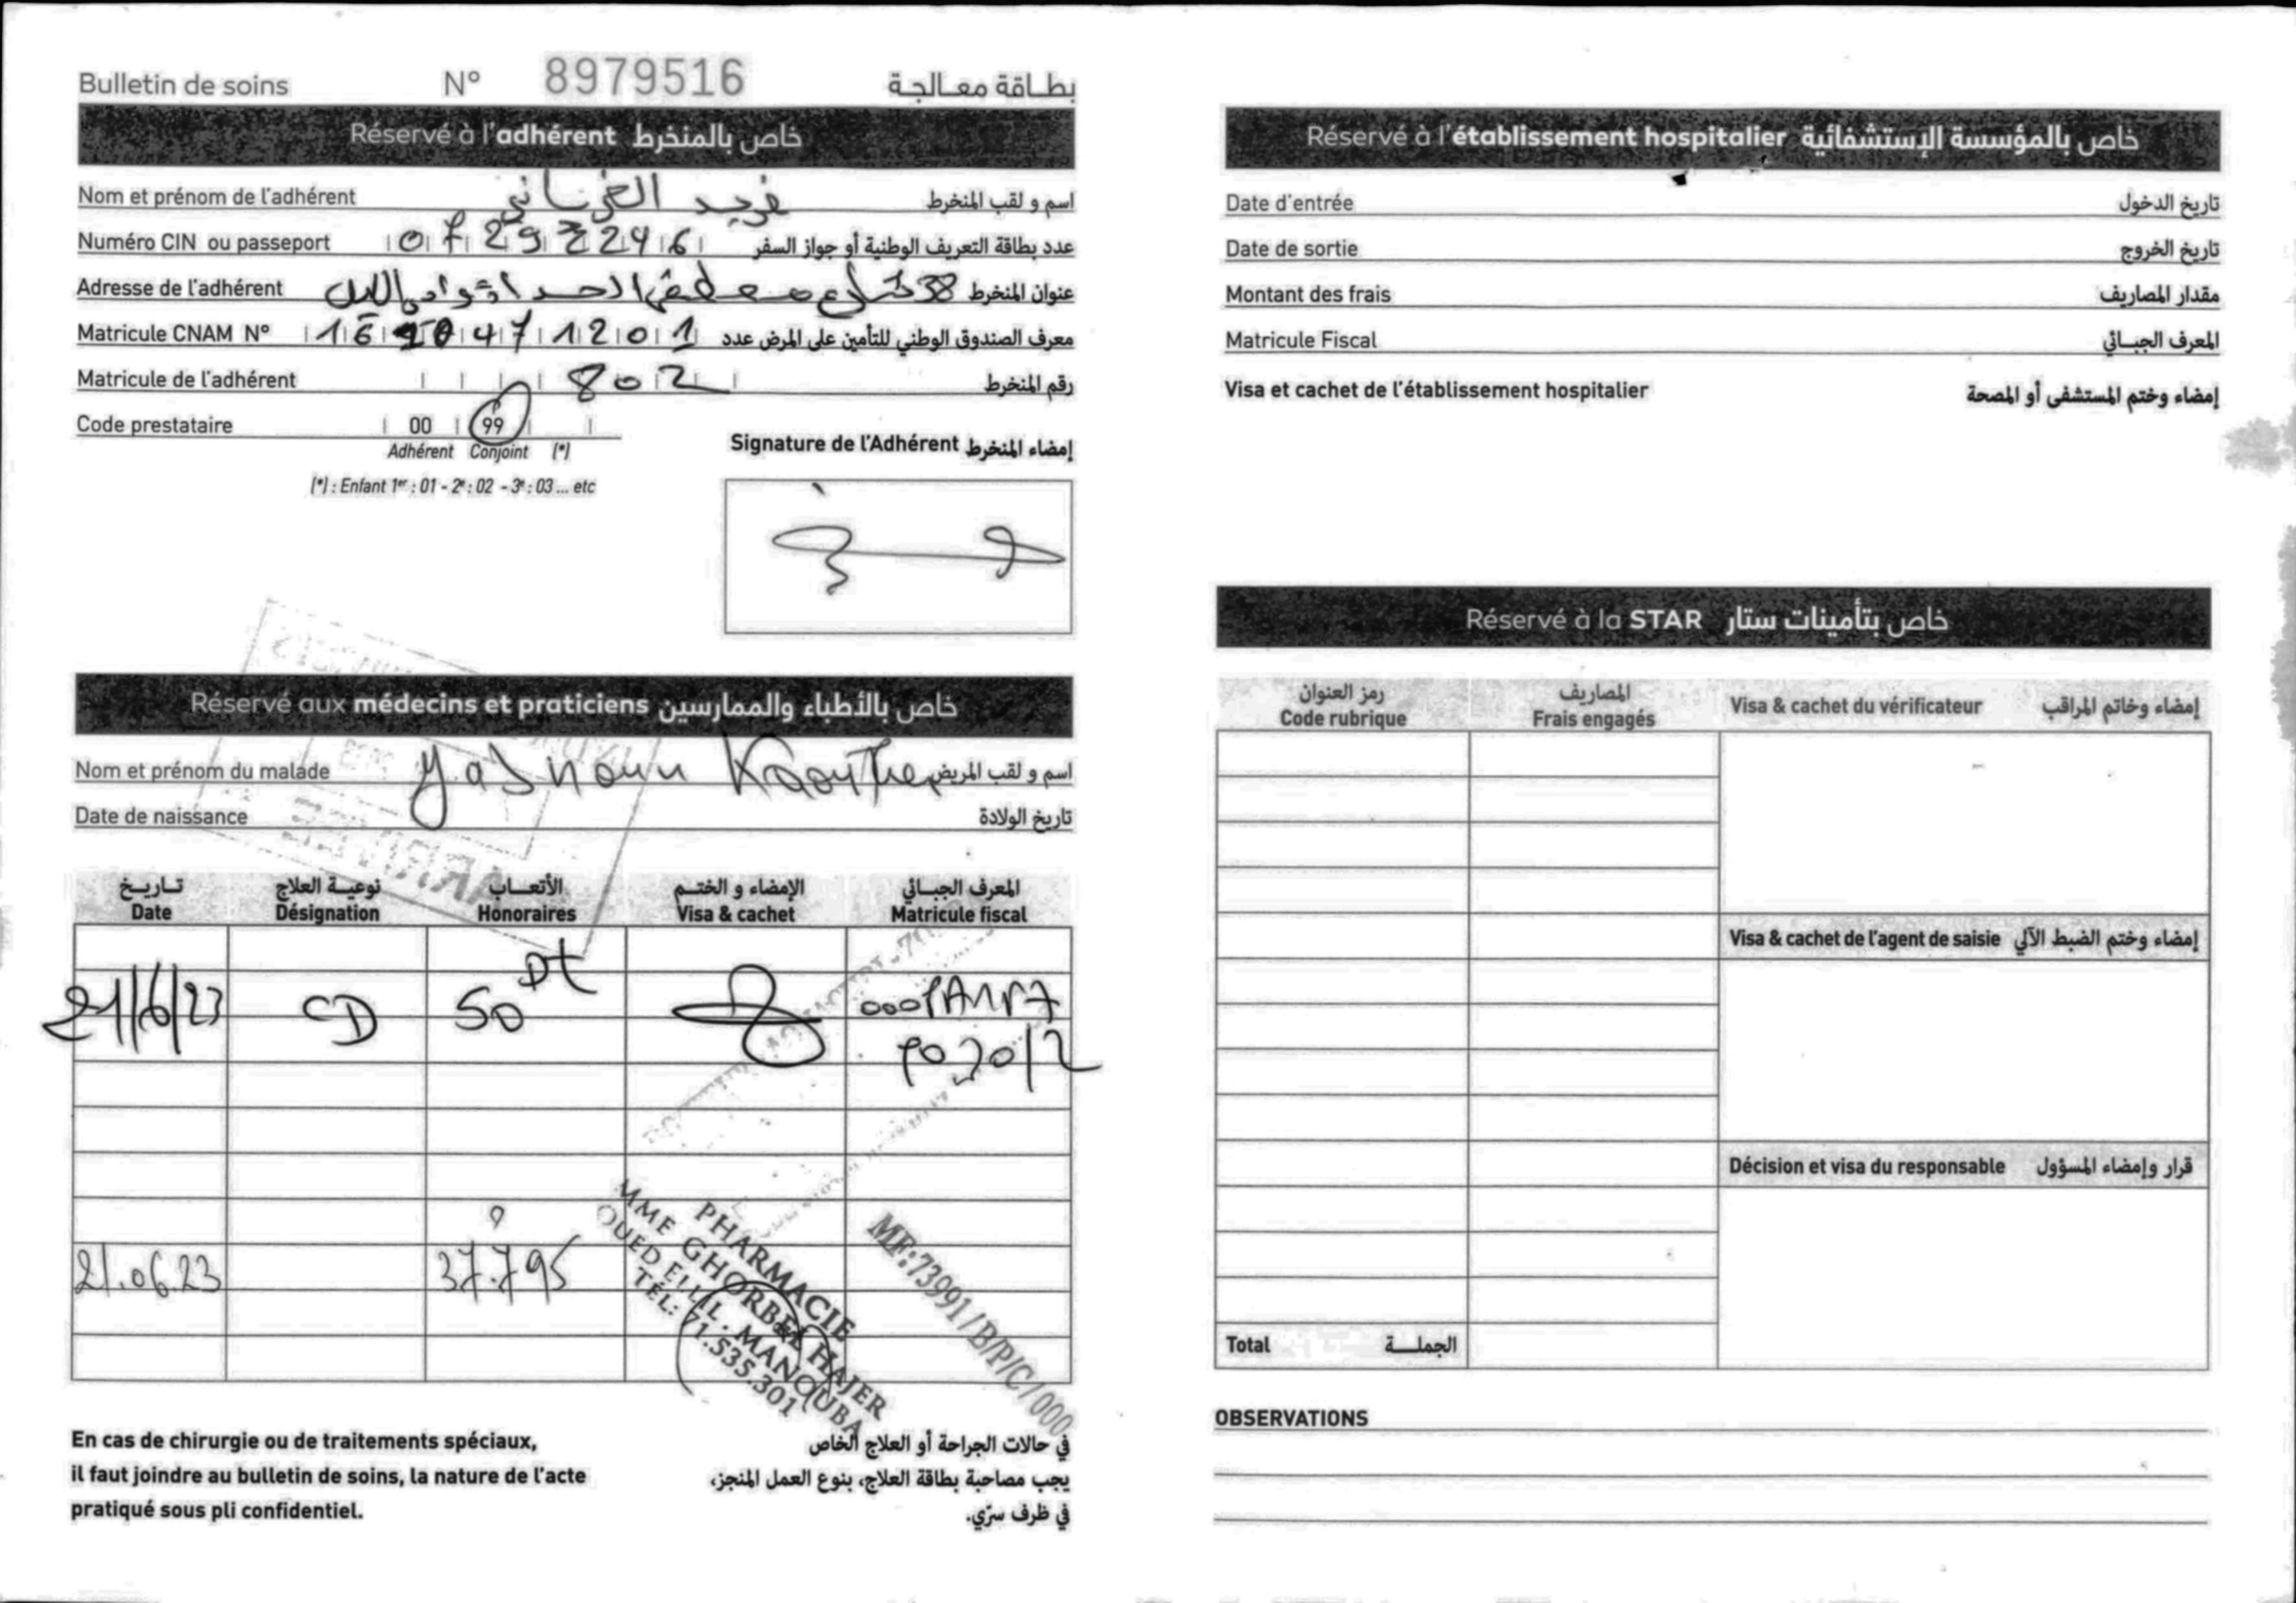 Bulletin de soins N° 8979516 بطاقة معالجة
Réservé à l'adhérent خاص بالمنخرط
Nom et prénom de l'adhérent فريد اسم و لقب المنخرط
Numéro CIN ou passeport عدد بطاقة التعريف الوطنية أو جواز السفر
Adresse de l'adhérent 38 شارع عنوان المنخرط
Matricule CNAM N° معرف الصندوق الوطني للتأمين على المرض عدد
Matricule de l'adhérent 802 رقم المنخرط
Code prestataire 00 99
Adhérent Conjoint (*)
(*) : Enfant 1er : 01 - 2e : 02 - 3e : 03 ... etc
Signature de l'Adhérent إمضاء المنخرط
Réservé aux médecins et praticiens خاص بالأطباء والممارسين
Nom et prénom du malade Kaouther اسم و لقب المريض
Date de naissance تاريخ الولادة
تاريخ نوعية العلاج الأتعاب الإمضاء و الختم المعرف الجبائي
Date Désignation Honoraires Visa & cachet Matricule fiscal
21/6/23 CD 50 Dt
21.06.23 37.795
PHARMACIE
MME GHORBEL HAJER
OUED ELLIL . MANOUBA
TÉL: 71.535.301
MF:73991/B/P/C/000
En cas de chirurgie ou de traitements spéciaux,
il faut joindre au bulletin de soins, la nature de l'acte
pratiqué sous pli confidentiel.
في حالات الجراحة أو العلاج الخاص
يجب مصاحبة بطاقة العلاج، بنوع العمل المنجز،
في ظرف سرّي.
Réservé à l'établissement hospitalier خاص بالمؤسسة الإستشفائية
Date d'entrée تاريخ الدخول
Date de sortie تاريخ الخروج
Montant des frais مقدار المصاريف
Matricule Fiscal المعرف الجبائي
Visa et cachet de l'établissement hospitalier إمضاء وختم المستشفى أو المصحة
Réservé à la STAR خاص بتأمينات ستار
رمز العنوان المصاريف
Code rubrique Frais engagés Visa & cachet du vérificateur إمضاء وخاتم المراقب
Visa & cachet de l'agent de saisie إمضاء وختم الضبط الآلي
Décision et visa du responsable قرار وإمضاء المسؤول
Total الجملة
OBSERVATIONS